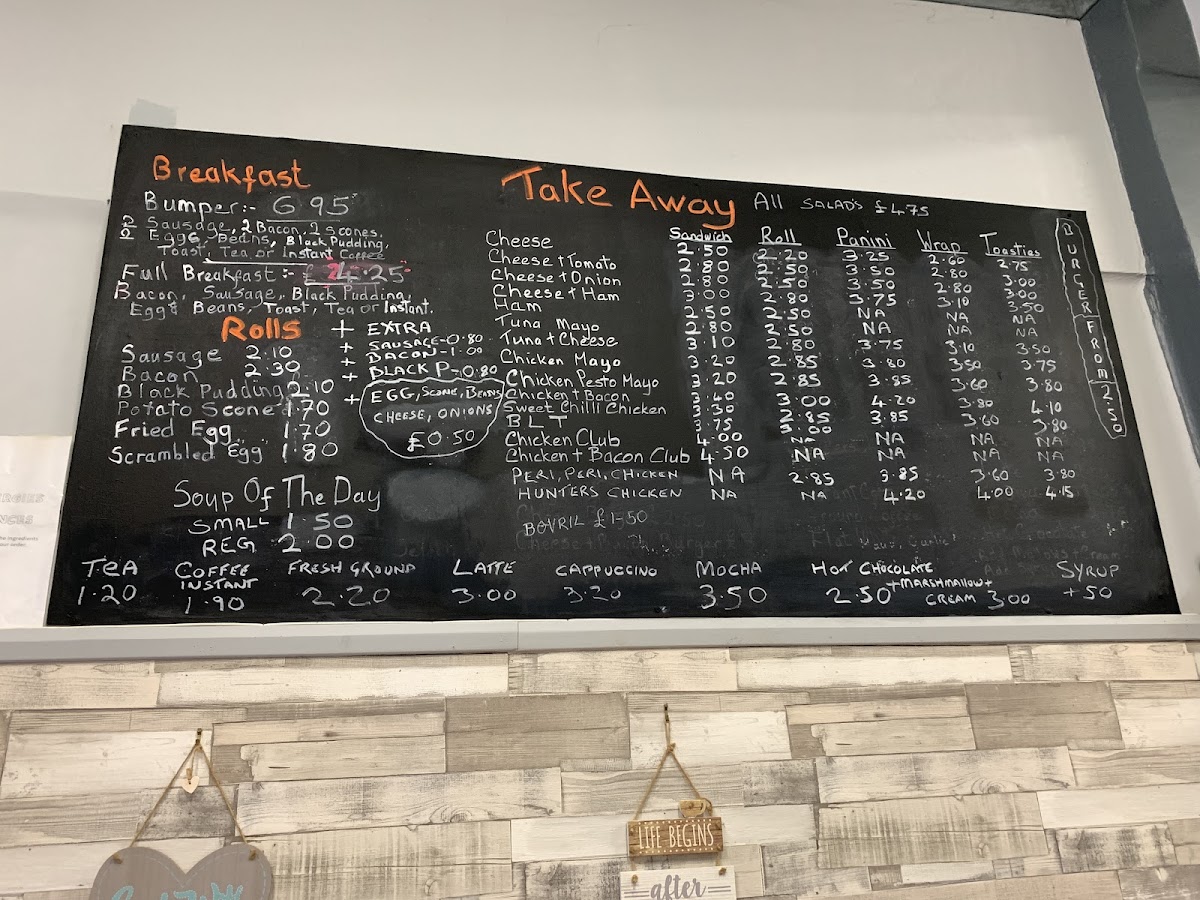 Breakfast
Bumper:- 6 95
2 Sausage, 2 Bacon, 2 scones.
2 Eggs, Beans, Black Pudding,
Toast, Tea or Instant Coffee
Full Breakfast :- £ 4.25
Bacon, Sausage, Black Pudding,
Egg & Beans, Toast, Tea or Instant.
Rolls
Sausage 2.10
Bacon 2.30
Black Pudding 2.10
Potato Scone 1.70
Fried Egg 1.70
Scrambled Egg 1.80
+ EXTRA
+ SAUSAGE-0.80
+ BACON-1.00
+ BLACK P-0.80
+ EGG, SCONE, BEANS
CHEESE, ONIONS
£0.50
Soup Of The Day
SMALL 1.50
REG 2.00
Take Away
All SALADS £4.75
Sandwich Roll Panini Wrap Toasties
Cheese 2.50 2.20 3.25 2.60 2.75
Cheese + Tomato 2.80 2.50 3.50 2.80 3.00
Cheese + Onion 2.80 2.50 3.50 2.80 3.00
Cheese + Ham 3.00 2.80 3.75 3.10 3.50
Ham 2.50 2.50 NA NA NA
Tuna Mayo 2.80 2.50 NA NA NA
Tuna + Cheese 3.10 2.80 3.75 3.10 3.50
Chicken Mayo 3.20 2.85 3.80 3.50 3.75
Chicken Pesto Mayo 3.20 2.85 3.85 3.60 3.80
Chicken + Bacon 3.40 3.00 4.20 3.80 4.10
Sweet Chilli Chicken 3.30 2.85 3.85 3.60 3.80
BLT 3.75 2.85 NA NA NA
Chicken Club 4.00 NA NA NA NA
Chicken + Bacon Club 4.50
PERI, PERI, CHICKEN NA 2.85 3.85 3.60 3.80
HUNTERS CHICKEN NA NA 4.20 4.00 4.15
BOVRIL £1-50
BURGER FROM 2.50
TEA
1.20
COFFEE
INSTANT
1.90
FRESH GROUND
2.20
LATTE
3.00
CAPPUCCINO
3.20
MOCHA
3.50
HOT CHOCOLATE
2.50
+MARSHMALLOW+
CREAM 3.00
SYRUP
+50
LIFE BEGINS
after